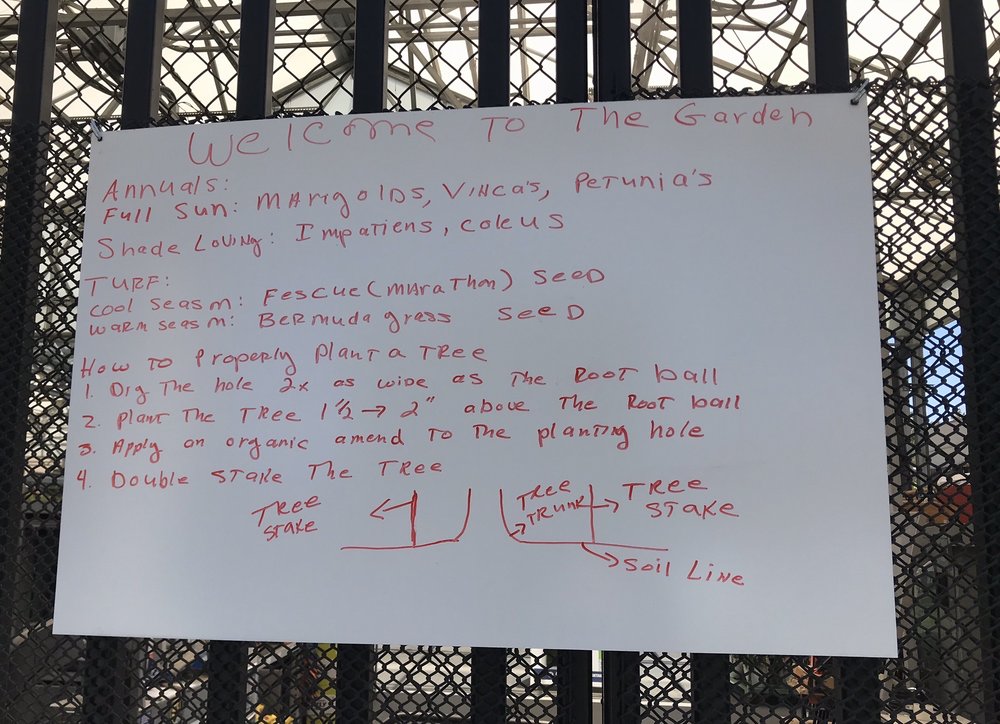 Welcome To The Garden
Annuals:
Full Sun: Marigolds, Vinca's, Petunia's
Shade Loving: Impatiens, coleus
TURF:
Cool Season: Fescue (Marathon) Seed
Warm Season: Bermuda grass Seed
How To Properly Plant a Tree
1. Dig The hole 2x as wide as The Root ball
2. Plant The Tree 1 1/2 → 2" above The Root ball
3. Apply an organic amend to The planting hole
4. Double Stake The Tree
Tree Stake
Tree Trunk
Tree Stake
Soil Line